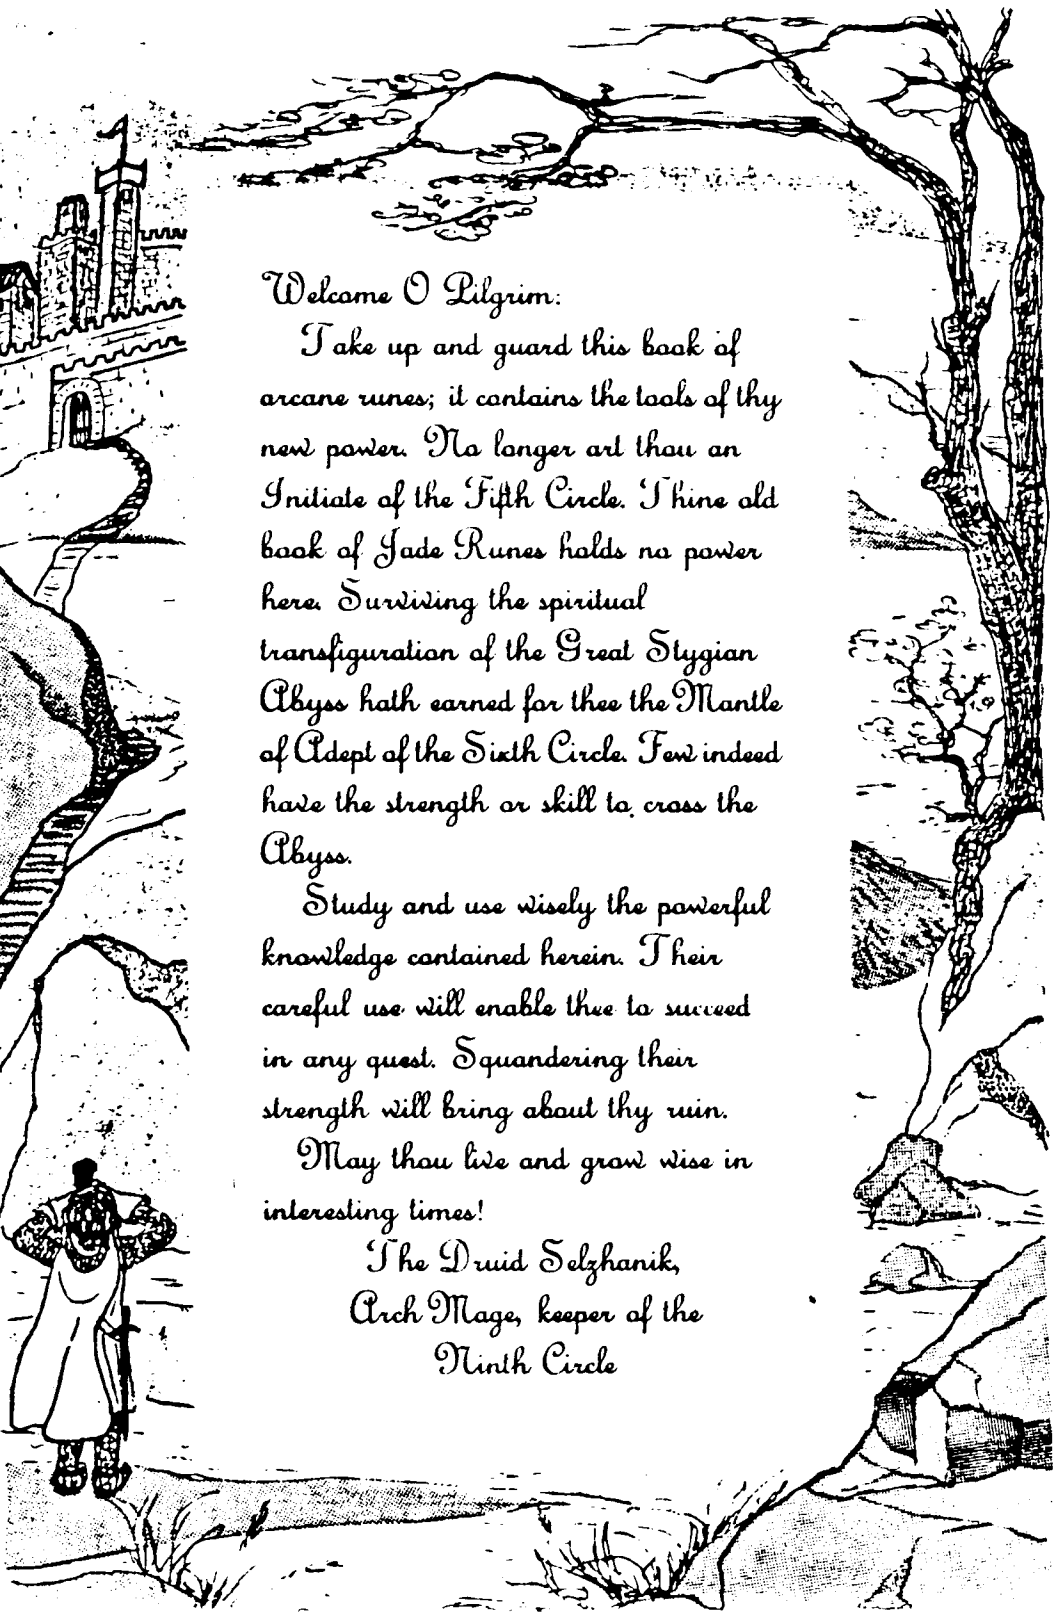 Welcome O Pilgrim:
Take up and guard this book of
arcane runes; it contains the tools of thy
new power. No longer art thou an
Initiate of the Fifth Circle. Thine old
book of Jade Runes holds no power
here. Surviving the spiritual
transfiguration of the Great Stygian
Abyss hath earned for thee the Mantle
of Adept of the Sixth Circle. Few indeed
have the strength or skill to cross the
Abyss.
Study and use wisely the powerful
knowledge contained herein. Their
careful use will enable thee to succeed
in any quest. Squandering their
strength will bring about thy ruin.
May thou live and grow wise in
interesting times!
The Druid Selzhanik,
Arch Mage, keeper of the
Ninth Circle